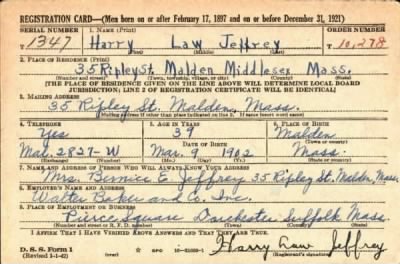 REGISTRATION CARD—(Men born on or after February 17, 1897 and on or before December 31, 1921)
SERIAL NUMBER 1. NAME (Print) ORDER NUMBER
T 1347 Harry Law Jeffrey T 10,278
(First) (Middle) (Last)
2. PLACE OF RESIDENCE (Print)
35 Ripley St. Malden Middlesex Mass.
(Number and street) (Town, township, village, or city) (County) (State)
[THE PLACE OF RESIDENCE GIVEN ON THE LINE ABOVE WILL DETERMINE LOCAL BOARD
JURISDICTION; LINE 2 OF REGISTRATION CERTIFICATE WILL BE IDENTICAL]
3. MAILING ADDRESS
35 Ripley St. Malden, Mass.
[Mailing address if other than place indicated on line 2. If same insert word same]
4. TELEPHONE 5. AGE IN YEARS 6. PLACE OF BIRTH
Yes 39 Malden
DATE OF BIRTH (Town or county)
Mal. 2827-W Mar. 9 1902 Mass.
(Exchange) (Number) (Mo.) (Day) (Yr.) (State or country)
7. NAME AND ADDRESS OF PERSON WHO WILL ALWAYS KNOW YOUR ADDRESS
Mrs. Bernice E. Jeffrey 35 Ripley St. Malden, Mass.
8. EMPLOYER'S NAME AND ADDRESS
Walter Baker and Co. Inc.
9. PLACE OF EMPLOYMENT OR BUSINESS
Pierce Square Dorchester Suffolk Mass.
(Number and street or R. F. D. number) (Town) (County) (State)
I AFFIRM THAT I HAVE VERIFIED ABOVE ANSWERS AND THAT THEY ARE TRUE.
D. S. S. Form 1
(Revised 1-1-42) GPO Harry Law Jeffrey
(Registrant's signature)